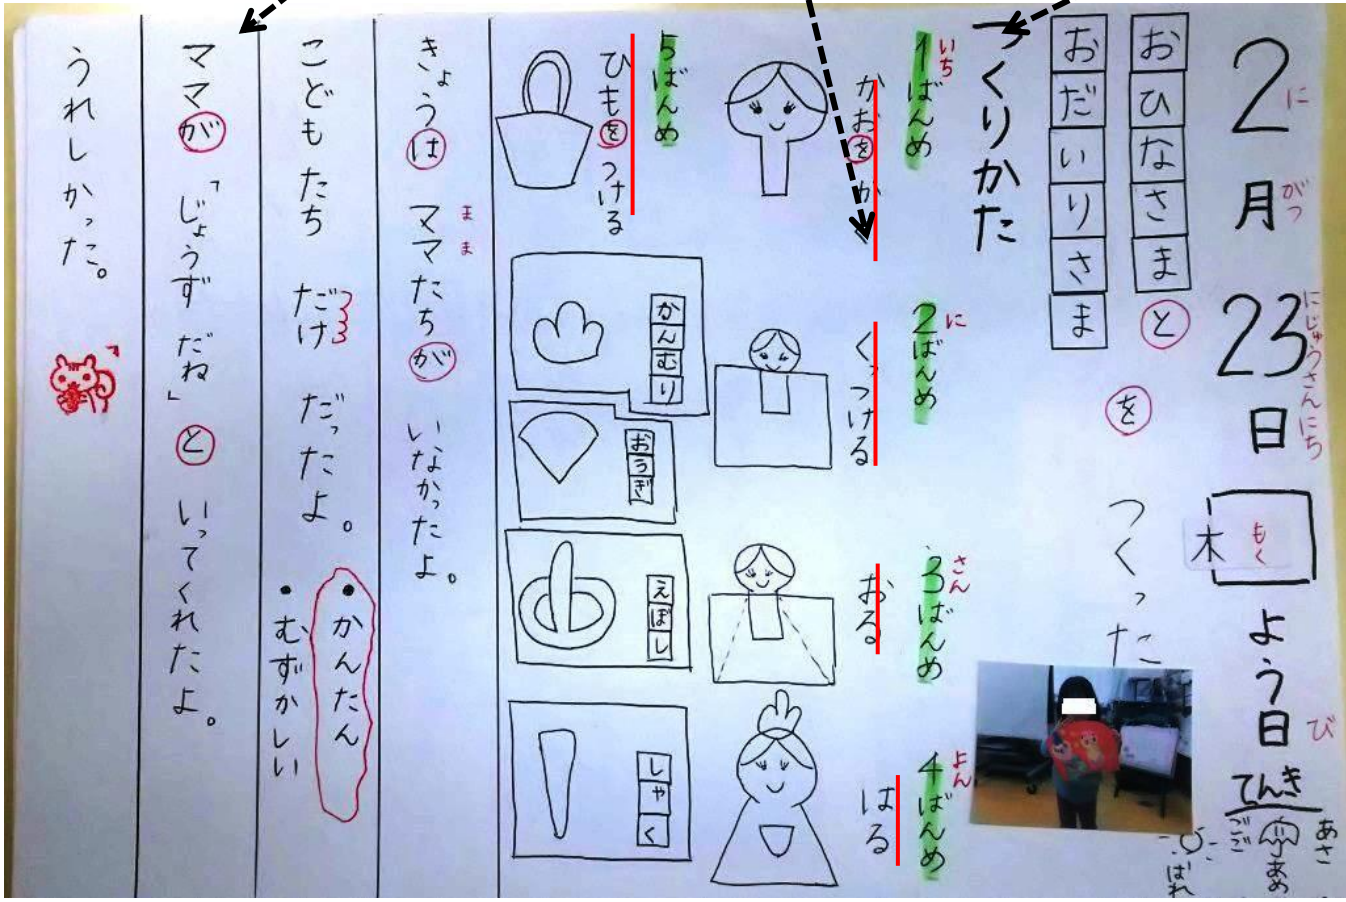 2月23日木よう日
に
がつ
にじゅうさんにち
もく
び
てんき
あさ
あめ
ごご
はれ
おひなさまと
おだいりさま
を
つくった
つくりかた
いち
1ばんめ
かおをか
に
2ばんめ
くっつける
さん
3ばんめ
おる
よん
4ばんめ
はる
5ばんめ
ひもをつける
かんむり
おうぎ
えぼし
しゃく
きょうは ママたちが いなかったよ。
まま
こどもたち だけ だったよ。
・かんたん
・むずかしい
ママが「じょうず だね」と いってくれたよ。
うれしかった。